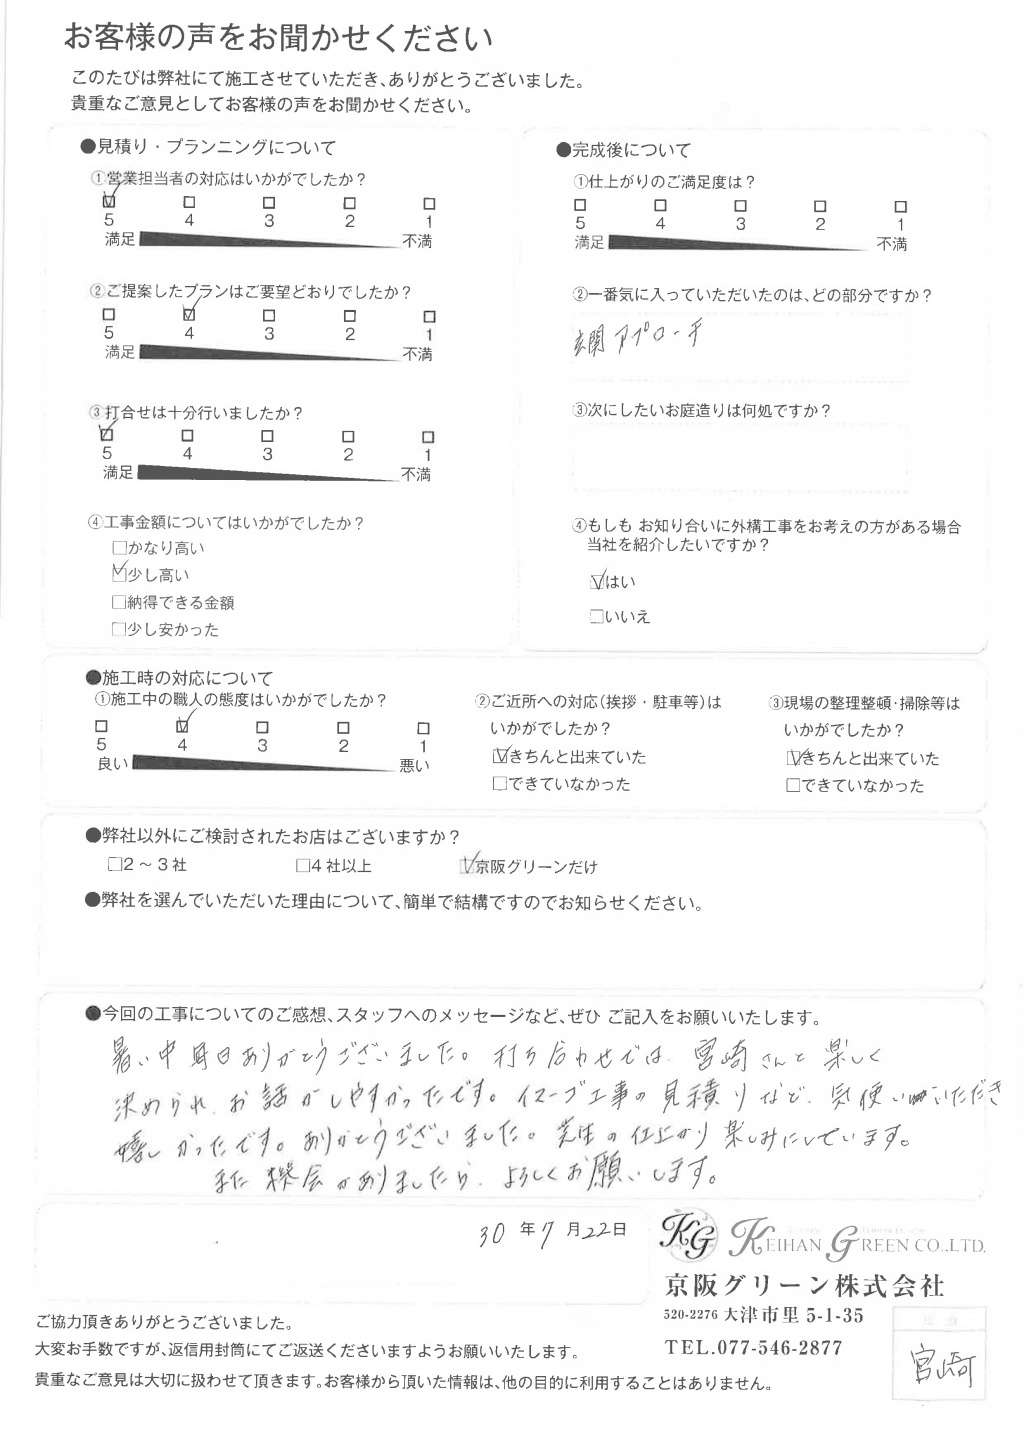 お客様の声をお聞かせください
このたびは弊社にて施工させていただき、ありがとうございました。
貴重なご意見としてお客様の声をお聞かせください。
●見積り・プランニングについて
①営業担当者の対応はいかがでしたか？
5 4 3 2 1
満足 不満
②ご提案したプランはご要望どおりでしたか？
5 4 3 2 1
満足 不満
③打合せは十分行いましたか？
5 4 3 2 1
満足 不満
④工事金額についてはいかがでしたか？
□かなり高い
☑少し高い
□納得できる金額
□少し安かった
●完成後について
①仕上がりのご満足度は？
5 4 3 2 1
満足 不満
②一番気に入っていただいたのは、どの部分ですか？
玄関アプローチ
③次にしたいお庭造りは何処ですか？
④もしも お知り合いに外構工事をお考えの方がある場合
当社を紹介したいですか？
☑はい
□いいえ
●施工時の対応について
①施工中の職人の態度はいかがでしたか？
5 4 3 2 1
良い 悪い
②ご近所への対応（挨拶・駐車等）は
いかがでしたか？
☑きちんと出来ていた
□できていなかった
③現場の整理整頓・掃除等は
いかがでしたか？
☑きちんと出来ていた
□できていなかった
●弊社以外にご検討されたお店はございますか？
□2～3社 □4社以上 ☑京阪グリーンだけ
●弊社を選んでいただいた理由について、簡単で結構ですのでお知らせください。
●今回の工事についてのご感想、スタッフへのメッセージなど、ぜひ ご記入をお願いいたします。
暑い中毎日ありがとうございました。打ち合わせでは、宮崎さんと楽しく
決められ、お話がしやすかったです。イメージ工事の見積りなど、気使いいただき
嬉しかったです。ありがとうございました。芝生の仕上がり楽しみにしています。
また機会がありましたら、よろしくお願いします。
30年7月22日
KG KEIHAN GREEN CO.,LTD.
京阪グリーン株式会社
520-2276 大津市里 5-1-35
TEL.077-546-2877
ご協力頂きありがとうございました。
大変お手数ですが、返信用封筒にてご返送くださいますようお願いいたします。
貴重なご意見は大切に扱わせて頂きます。お客様から頂いた情報は、他の目的に利用することはありません。
宮崎